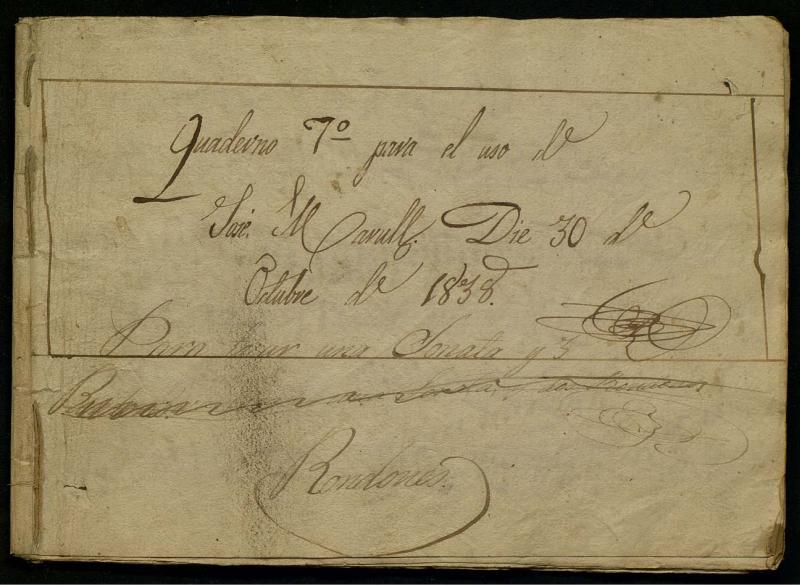 Quaderno 7º para el uso de
José M Marull. Die 30 de
Octubre de 1838.
Para una Sonata y 3
Rondones.